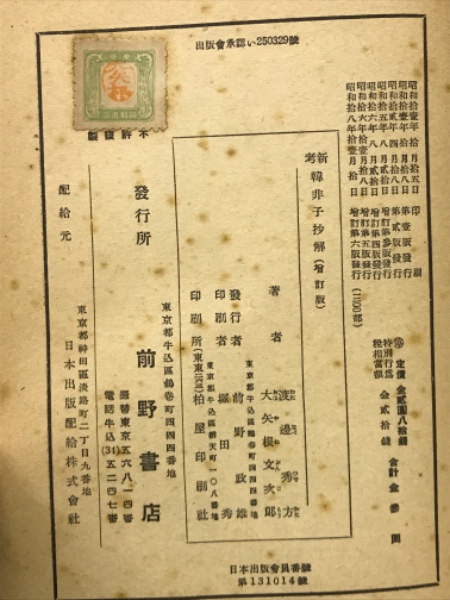 出版會承認い250329號
昭和拾壹年 拾月 拾五日 印刷
昭和拾壹年 拾月 拾八日 第壹版發行
昭和拾貳年 四月 拾八日 第貳版發行
昭和拾五年 八月 貳拾日 增訂第參版發行
昭和拾六年 八月 貳拾日 增訂第四版發行
昭和拾六年拾壹月拾八日 增訂第五版發行
昭和拾八年拾壹月拾日 增訂第六版發行
定價 金貳圓八拾錢
特別行爲税相當額 金貳拾錢
合計金參圓
新考 韓非子抄解(增訂版)
著者 渡邊秀方
大矢根文次郎
東京都牛込區鶴卷町四四四番地
發行者 前野政雄
印刷者 堀田秀
印刷所 柏屋印刷社
不許複製
發行所
東京都牛込區鶴卷町四四四番地
前野書店
振替東京五六八一四番
電話牛込(34)五二四七番
配給元
東京都神田區淡路町二丁目九番地
日本出版配給株式會社
日本出版會員番號
第131014號